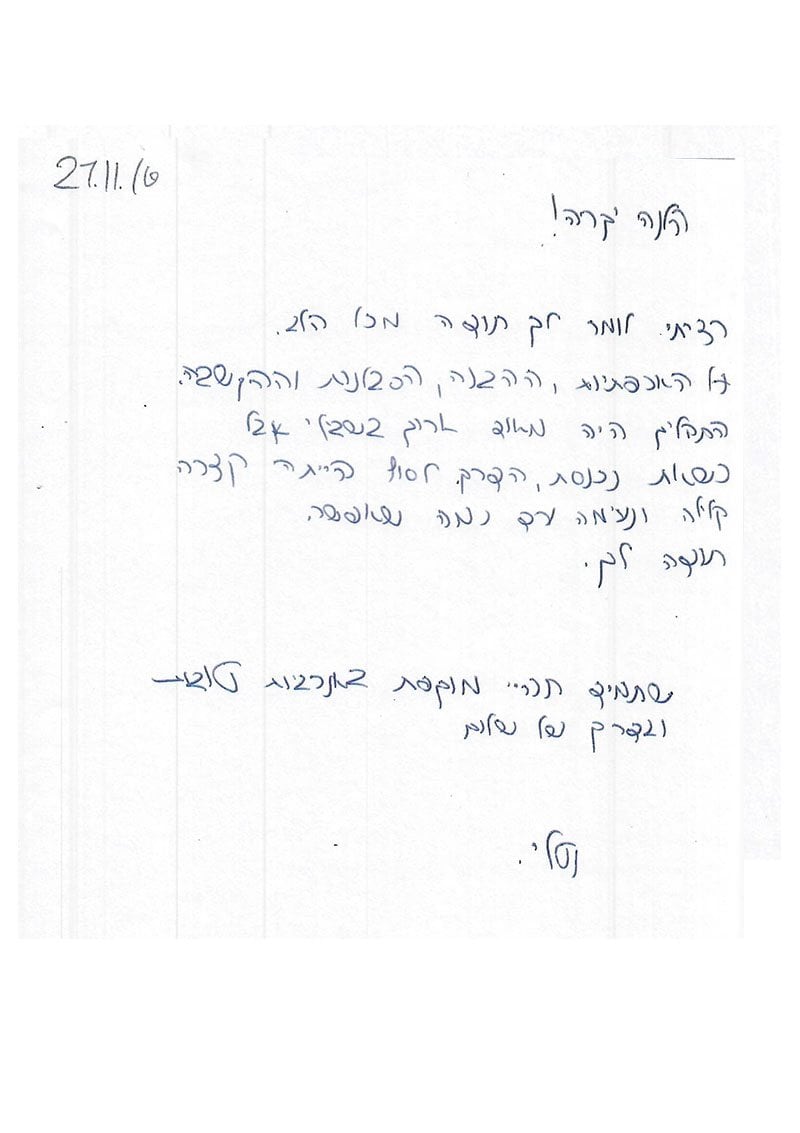 27.11.16
אלנה יקרה!
רציתי לומר לך תודה מכל הלב.
על האכפתיות, ההבנה, הסבלנות וההקשבה.
התהליך היה מאוד ארוך בשבילי אבל
כשאת נכנסת, הדרך לסוף הייתה קצרה
קלילה ונעימה עד כמה שאפשר.
תודה לך.
שתמיד תהיי מוקפת באנרגיות טובות
ובדרך של שלום
נטלי.